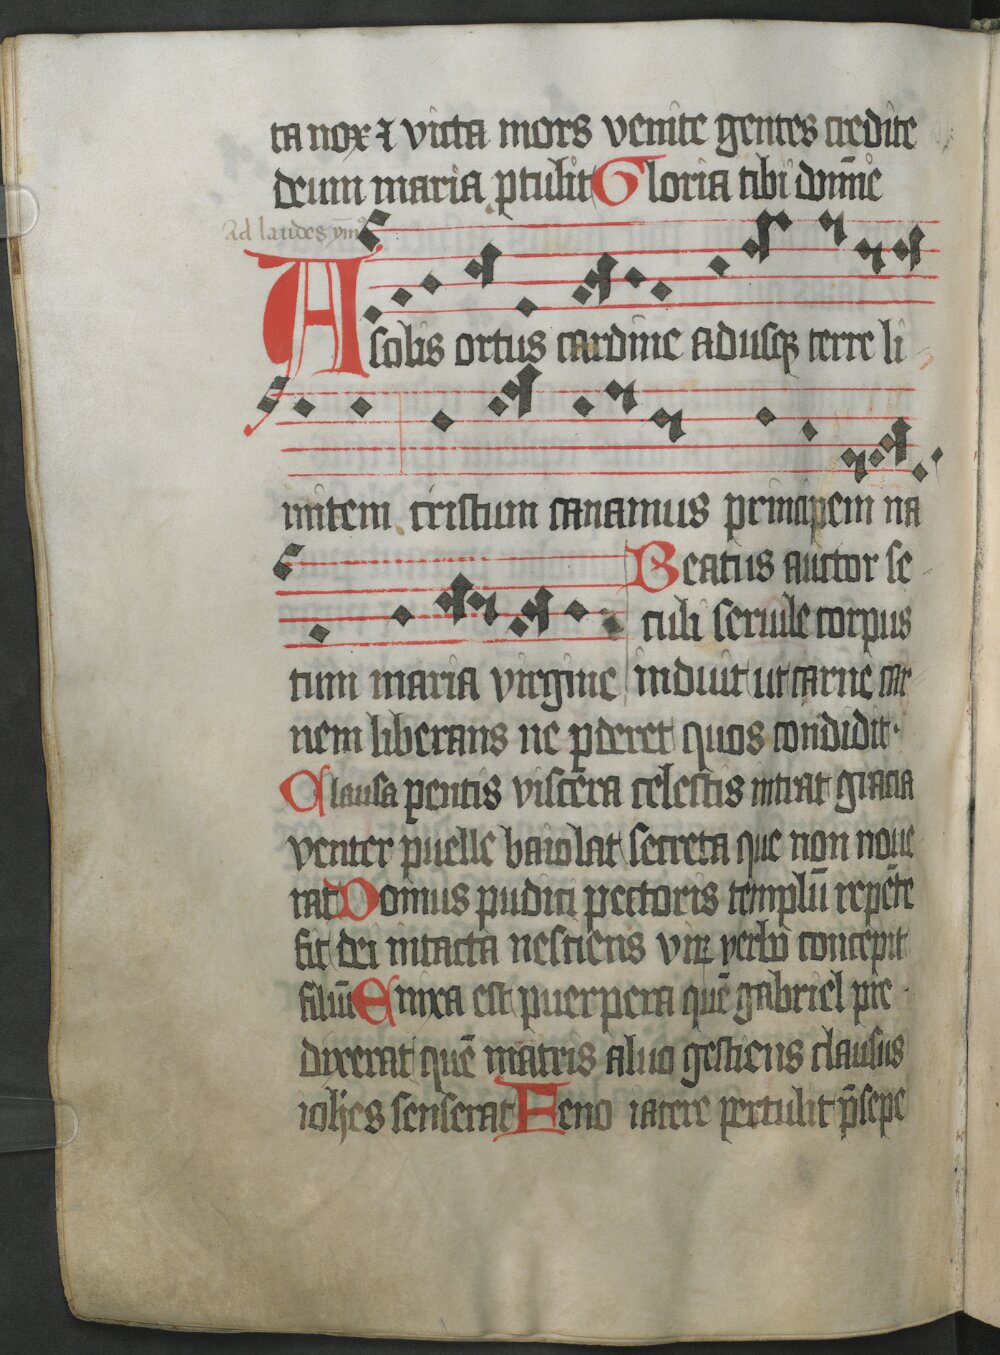 ta nox ⁊ victa mors venite gentes credite
deum maria ꝓtulit Gloria tibi dom̄ine
Ad laudes ym̄
A solis ortus cardine adusqꝫ terre li
mitem cristum canamus principem na
tum maria virgine
Beatus auctor se
culi seruile corpus
induit ut carne car
nem liberans ne ꝑderet quos condidit·
Clausa pentis viscera celestis intrat gracia
venter puelle baiolat secreta que non noue
rat Domus pudici pectoris templū repēte
fit dei intacta nesciens viꝝ verbo concepit
filiū Enixa est puerpera quē gabriel pre
dixerat quē matris aluo gestiens clausus
ioħes senserat Feno iacere pertulit p̄sepe